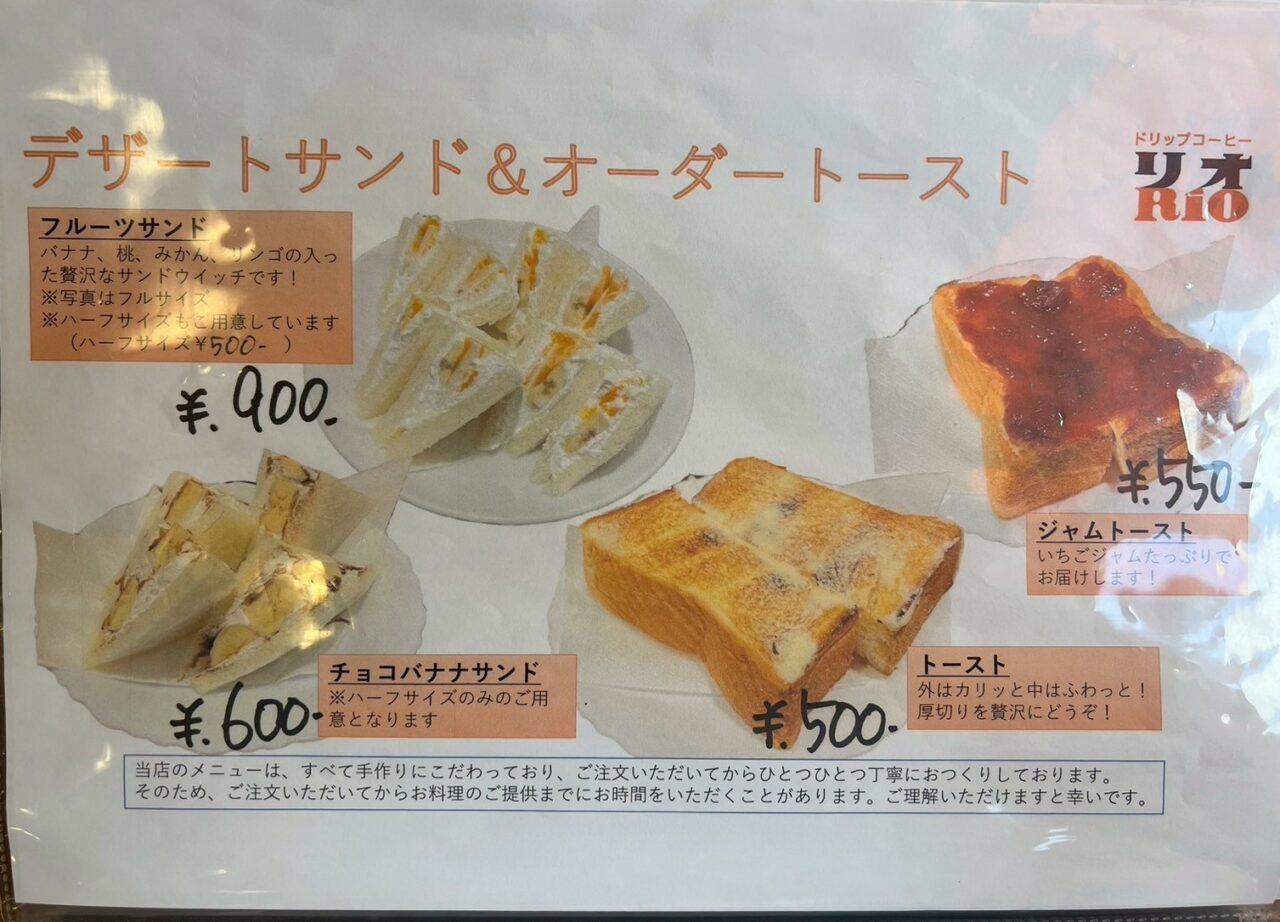 デザートサンド&オーダートースト
ドリップコーヒー
リオ
RiO
フルーツサンド
バナナ、桃、みかん、リンゴの入っ
た贅沢なサンドウイッチです！
※写真はフルサイズ
※ハーフサイズもご用意しています
（ハーフサイズ¥500-）
¥.900.-
¥.550-
ジャムトースト
いちごジャムたっぷりで
お届けします！
チョコバナナサンド
※ハーフサイズのみのご用
意となります
¥.600-
トースト
外はカリッと中はふわっと！
厚切りを贅沢にどうぞ！
¥.500-
当店のメニューは、すべて手作りにこだわっており、ご注文いただいてからひとつひとつ丁寧におつくりしております。
そのため、ご注文いただいてからお料理のご提供までにお時間をいただくことがあります。ご理解いただけますと幸いです。